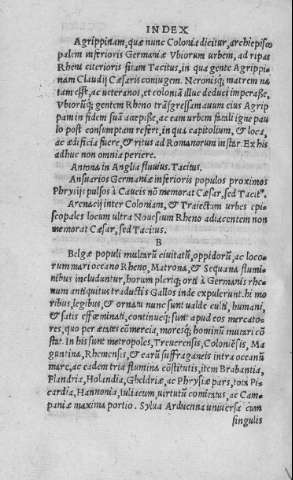 INDEX
Agrippinam, quæ nunc Colonia dicitur, archiepisco
palem inferioris Germaniæ Vbiorum urbem, ad ripas
Rheni citerioris sitam Tacitus, in qua gente Agrippi
nam Claudij Cæsaris coniugem, Neronisq; matrem na
tam esse, ac ueteranos, et coloniã illuc deduci imperasse,
Vbiorũq; gentem Rheno trãsgressam auum eius Agrip
pam in fidem suã accepisse, ac eam urbem fatali igne pau
lo post consumptem refert, in qua capitolium, & loca,
ac ædificia fuere, & ritus ad Romanorum instar. Ex his
adhuc non omnia periere.
Antona in Anglia fluuius. Tacitus.
Ansuarios Germaniæ inferioris populos proximos
Phrysijs pulsos à Caucis nõ memorat Cæsar, sed Tacit⁹.
Arenacij inter Coloniam, & Traiectum urbes epi
scopales locum ultra Nouesium Rheno adiacentem non
memorat Cæsar, sed Tacitus.
B
Belgæ populi multarũ ciuitatũ, oppidorũ, ac loco
rum mari oceano Rheno, Matrona, & Sequana flumi
nibus includuntur, horum pleriq; orti à Germanis rhe
num antiquitus traductis Gallos inde expulerunt. hi mo
ribus, legibus, & ornatu nunc sunt ualde culti, humani,
& satis effœminati, continueq; sunt apud eos mercato
res, quo per æstus cõmercia, moresq; hominũ mutari cõ
stat. In his sunt metropoles, Treuerensis, Coloniẽsis, Ma
guntina, Rhemensis, & carũ suffraganeis intra oceanũ
mare, ac eadem tria flumina cõstitutis, item Brabantia,
Flandria, Holandia, Gheldriæ, ac Phrysiæ pars, tota Pi
cardia, Hannonia, Iuliacum, uirtutũ comitatus, ac Cam
paniæ maxima portio. Sylua Arduenna uniuersa cum
singulis